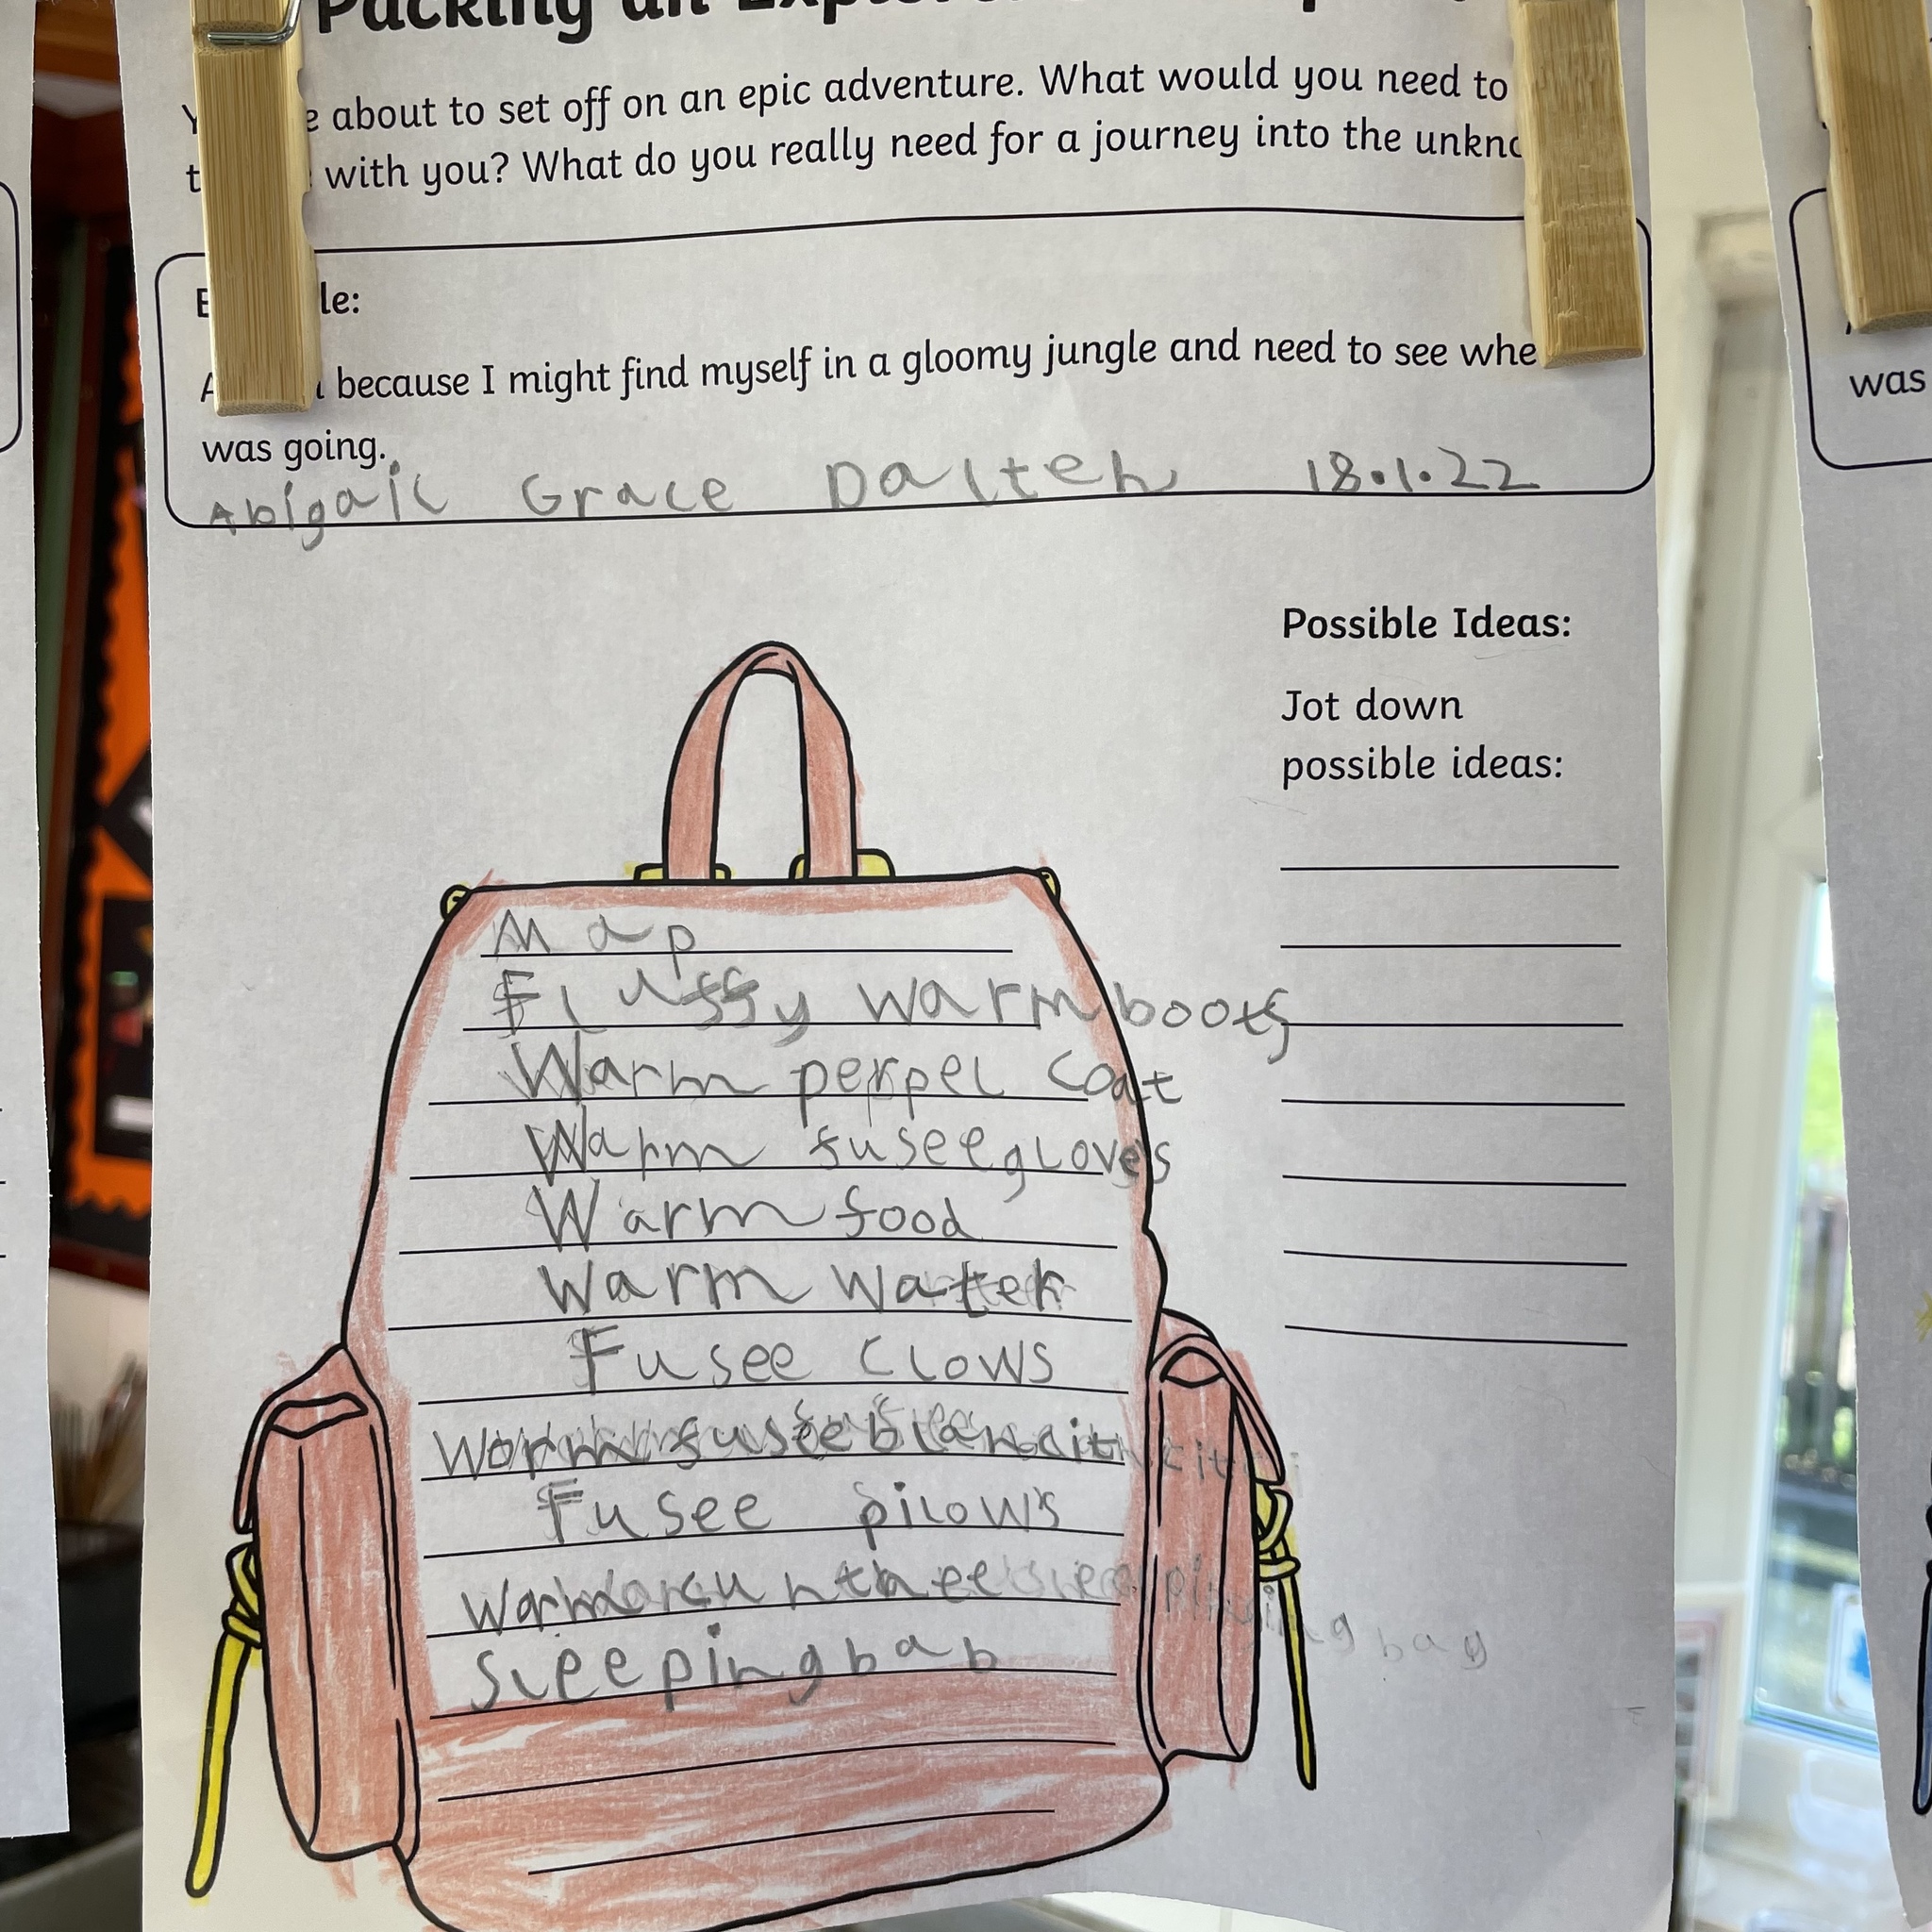 Packing an
about to set off on an epic adventure. What would you need to
with you? What do you really need for a journey into the
because I might find myself in a gloomy jungle and need to see
was going.
Abigail Grace Dalteh 18.1.22
Possible Ideas:
Jot down
possible ideas:
Map
Fluffy warm boots
Warm perpel coat
Warm fusee gloves
Warm food
Warm water
Fusee clows
Worm fusee blancit
Fusee pilows
Warm
sleeping bab
bag
was